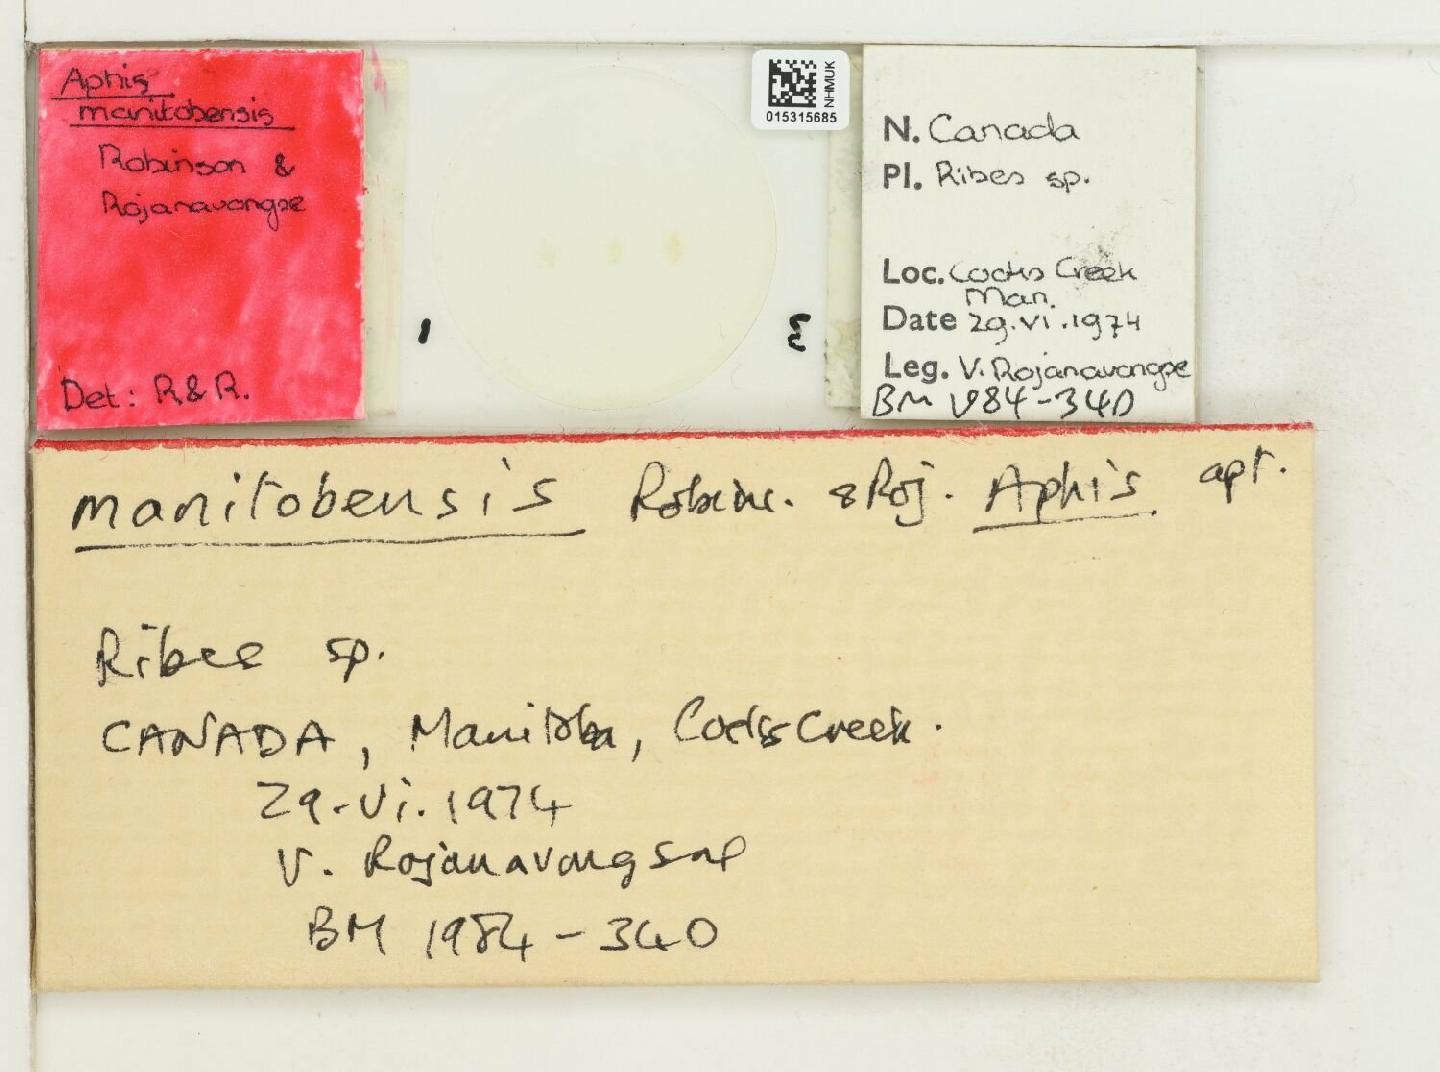 Aphis
manitobensis
Robinson &
Rojanavongse
Det: R&R.
1
3
NHMUK
015315685
N. Canada
Pl. Ribes sp.
Loc. Cooks Creek
Man.
Date 29.vi.1974
Leg. V. Rojanavongse
BM 1984-340
manitobensis Robins. & Roj. Aphis apt.
Ribes sp.
CANADA, Manitoba, Cooks Creek.
29.vi.1974
V. Rojanavongsae
BM 1984-340